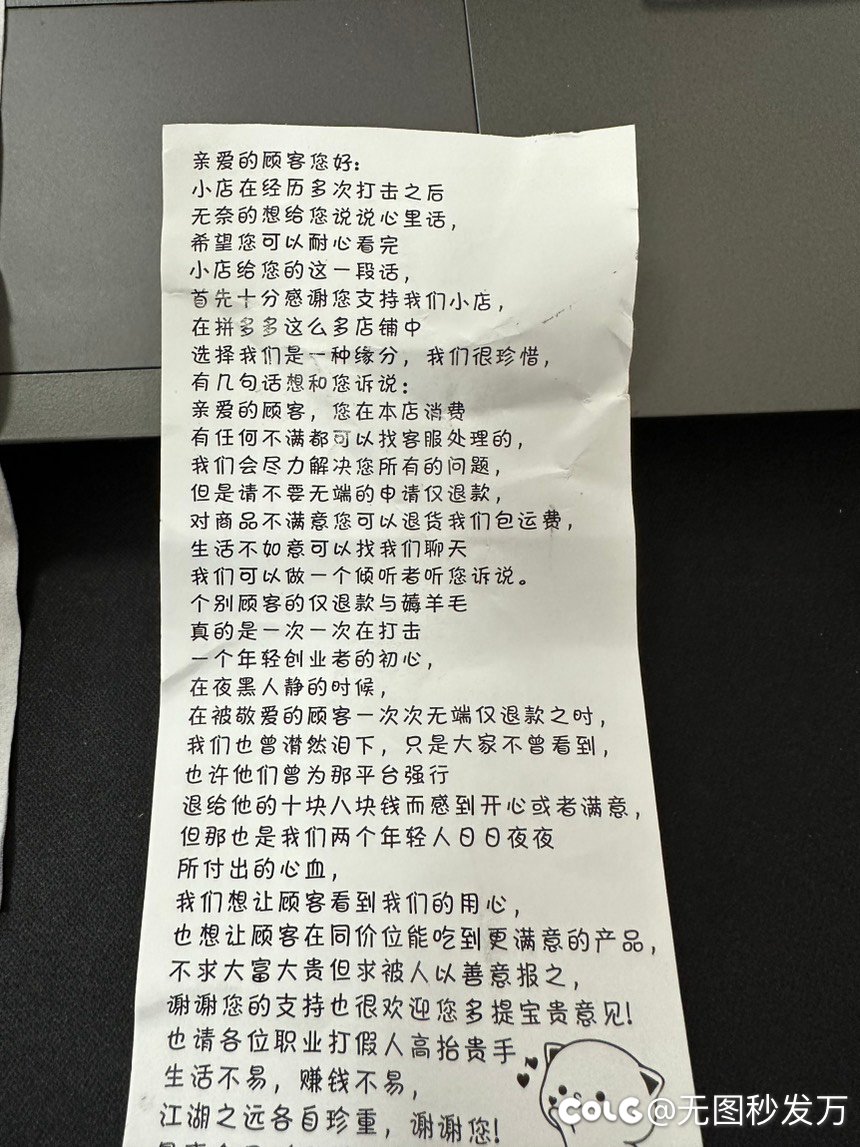 亲爱的顾客您好:
小店在经历多次打击之后
无奈的想给您说说心里话,
希望您可以耐心看完
小店给您的这一段话,
首先十分感谢您支持我们小店,
在拼多多这么多店铺中
选择我们是一种缘分，我们很珍惜,
有几句话想和您诉说:
亲爱的顾客，您在本店消费
有任何不满都可以找客服处理的,
我们会尽力解决您所有的问题,
但是请不要无端的申请仅退款,
对商品不满意您可以退货我们包运费,
生活不如意可以找我们聊天
我们可以做一个倾听者听您诉说。
个别顾客的仅退款与薅羊毛
真的是一次一次在打击
一个年轻创业者的初心,
在夜黑人静的时候,
在被敬爱的顾客一次次无端仅退款之时,
我们也曾潸然泪下，只是大家不曾看到,
也许他们曾为那平台强行
退给他的十块八块钱而感到开心或者满意,
但那也是我们两个年轻人日日夜夜
所付出的心血,
我们想让顾客看到我们的用心,
也想让顾客在同价位能吃到更满意的产品,
不求大富大贵但求被人以善意报之,
谢谢您的支持也很欢迎您多提宝贵意见!
也请各位职业打假人高抬贵手
生活不易，赚钱不易,
江湖之远各自珍重，谢谢您!
COLG @无图秒发万